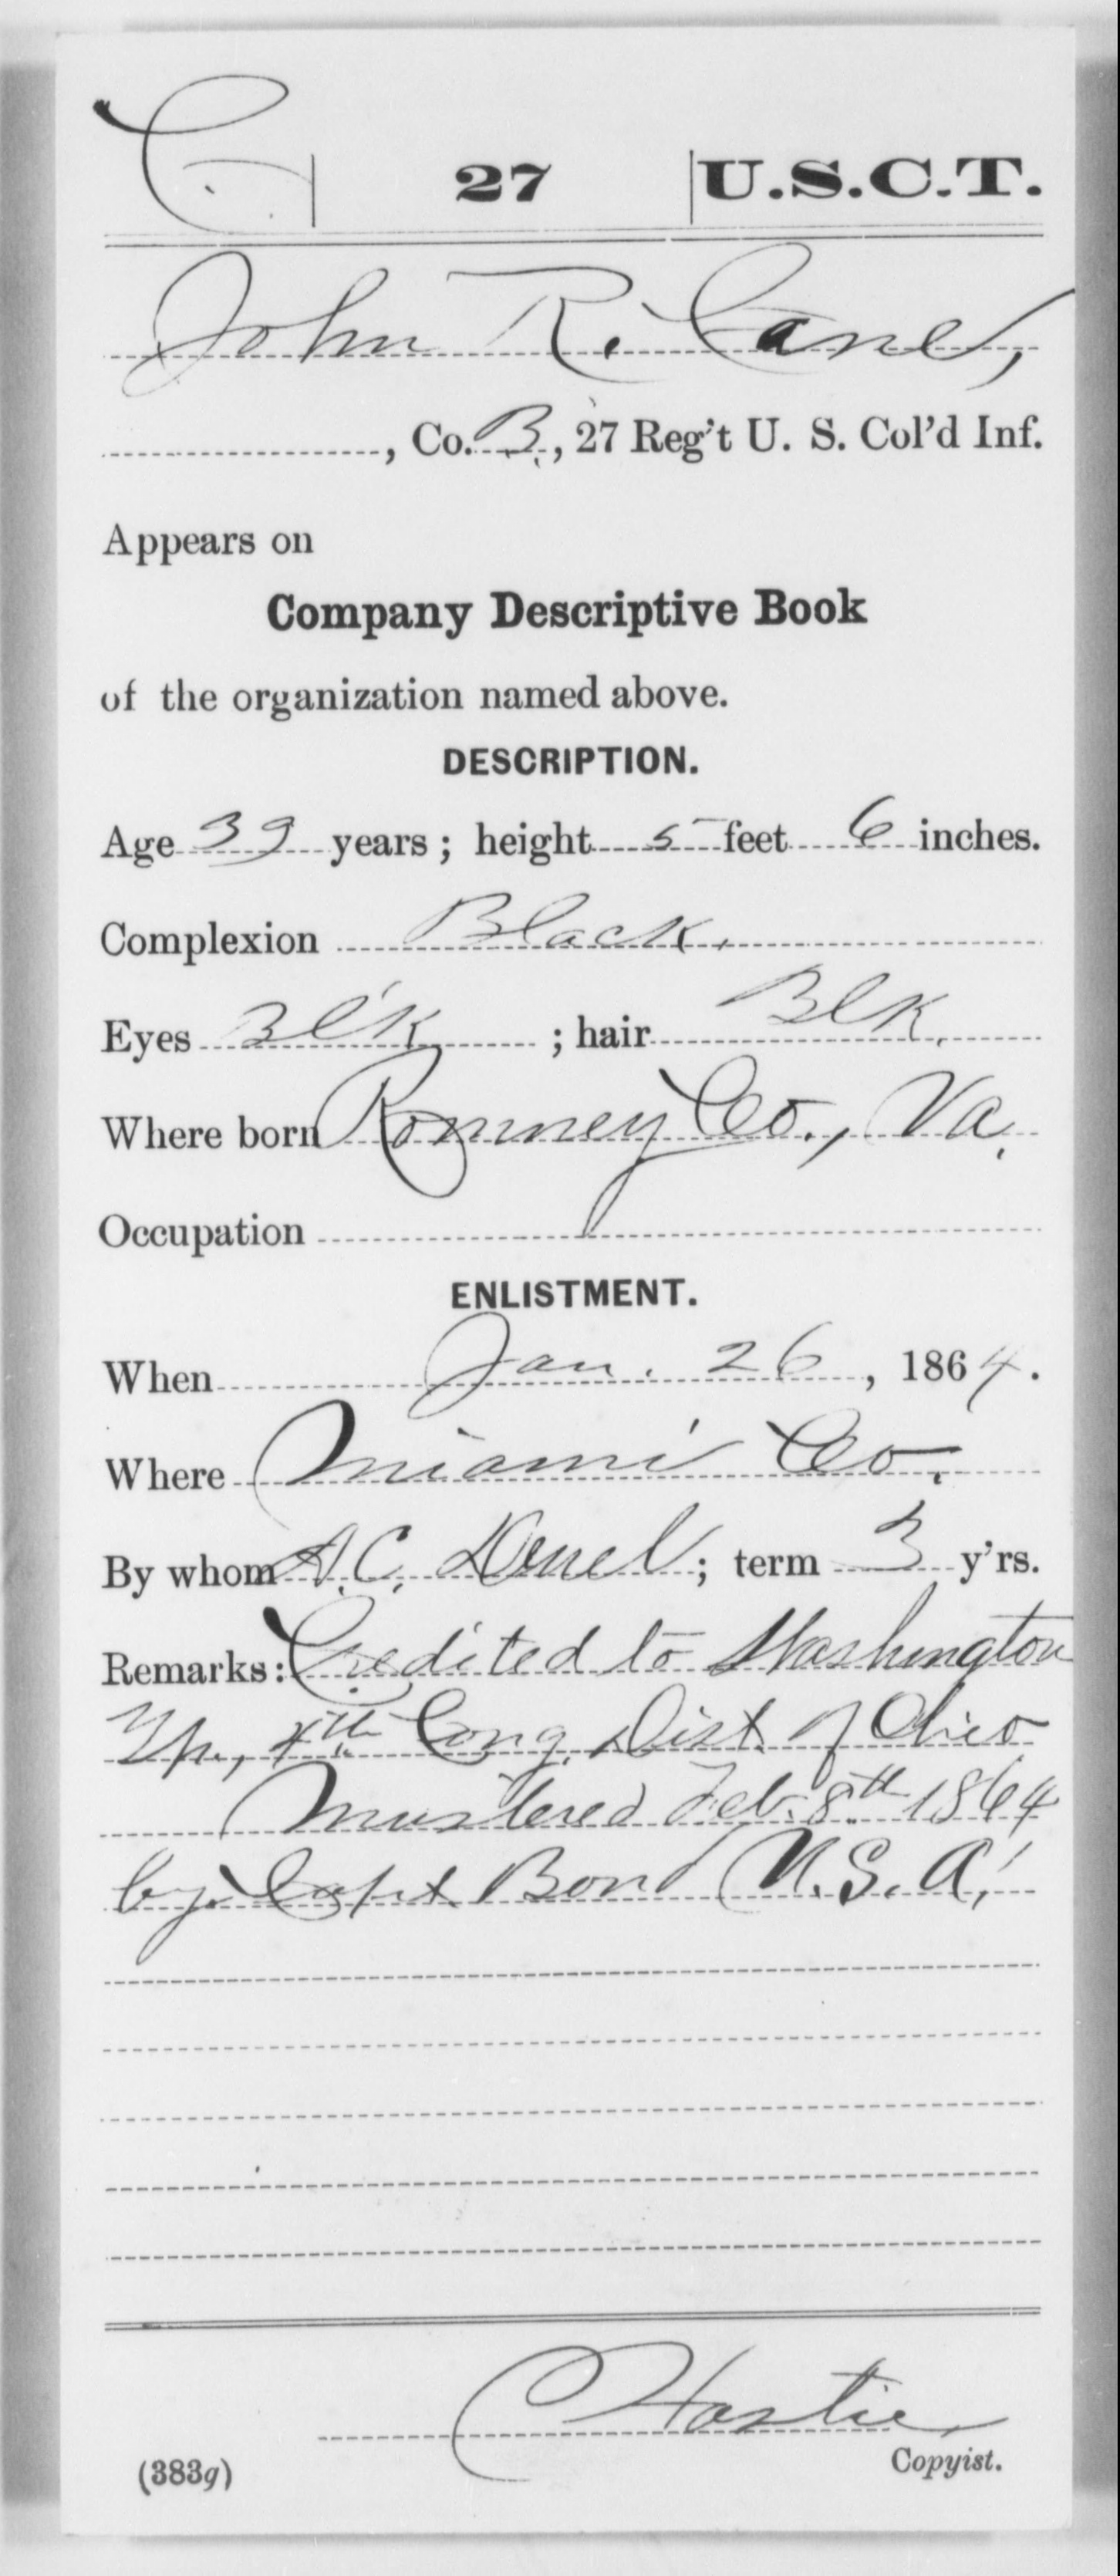 C | 27 | U.S.C.T.
John R. Cane,
, Co. B., 27 Reg't U. S. Col'd Inf.
Appears on
Company Descriptive Book
of the organization named above.
DESCRIPTION.
Age 39 years; height 5 feet 6 inches.
Complexion Black.
Eyes Bl'k ; hair Blk.
Where born Romney Co., Va.
Occupation
ENLISTMENT.
When Jan. 26, 1864.
Where Miami Co.
By whom A. C. Deuel; term 3 y'rs.
Remarks: Credited to Washington
Tp., 4th Cong. Dist. of Ohio
Mustered Feb. 8th 1864
by Capt. Bond U.S.A.
Hastie
Copyist.
(383g)